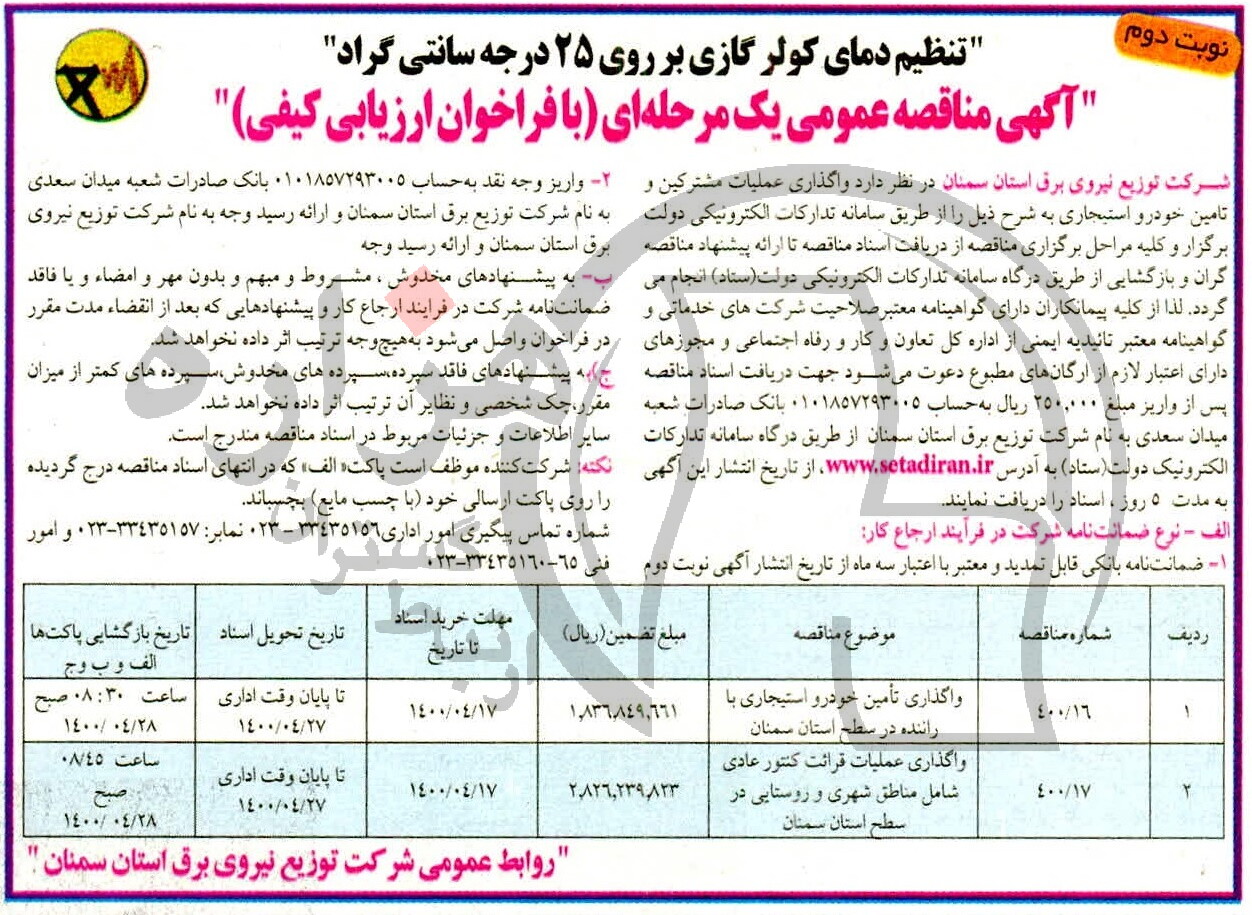 نوبت دوم
"تنظیم دمای کولر گازی بر روی ۲۵ درجه سانتی گراد"
"آگهی مناقصه عمومی یک مرحله‌ای (با فراخوان ارزیابی کیفی)"
شرکت توزیع نیروی برق استان سمنان در نظر دارد واگذاری عملیات مشترکین و
تامین خودرو استیجاری به شرح ذیل را از طریق سامانه تدارکات الکترونیکی دولت
برگزار و کلیه مراحل برگزاری مناقصه از دریافت اسناد مناقصه تا ارائه پیشنهاد مناقصه
گران و بازگشایی از طریق درگاه سامانه تدارکات الکترونیکی دولت(ستاد) انجام می
گردد. لذا از کلیه پیمانکاران دارای گواهینامه معتبرصلاحیت شرکت های خدماتی و
گواهینامه معتبر تائیدیه ایمنی از اداره کل تعاون و کار و رفاه اجتماعی و مجوزهای
دارای اعتبار لازم از ارگان‌های مطبوع دعوت می‌شود جهت دریافت اسناد مناقصه
پس از واریز مبلغ ۲۵۰,۰۰۰ ریال به‌حساب ۰۱۰۱۸۵۷۲۹۳۰۰۵ بانک صادرات شعبه
میدان سعدی به نام شرکت توزیع برق استان سمنان از طریق درگاه سامانه تدارکات
الکترونیک دولت(ستاد) به آدرس www.setadiran.ir، از تاریخ انتشار این آگهی
به مدت ۵ روز، اسناد را دریافت نمایند.
الف - نوع ضمانت‌نامه شرکت در فرآیند ارجاع کار:
۱- ضمانت‌نامه بانکی قابل تمدید و معتبر با اعتبار سه ماه از تاریخ انتشار آگهی نوبت دوم
۲- واریز وجه نقد به‌حساب ۰۱۰۱۸۵۷۲۹۳۰۰۵ بانک صادرات شعبه میدان سعدی
به نام شرکت توزیع برق استان سمنان و ارائه رسید وجه به نام شرکت توزیع نیروی
برق استان سمنان و ارائه رسید وجه
ب- به پیشنهادهای مخدوش، مشروط و مبهم و بدون مهر و امضاء و یا فاقد
ضمانت‌نامه شرکت در فرایند ارجاع کار و پیشنهادهایی که بعد از انقضاء مدت مقرر
در فراخوان واصل می‌شود به‌هیچ‌وجه ترتیب اثر داده نخواهد شد.
ج)به پیشنهادهای فاقد سپرده،سپرده های مخدوش،سپرده های کمتر از میزان
مقرر،چک شخصی و نظایر آن ترتیب اثر داده نخواهد شد.
سایر اطلاعات و جزئیات مربوط در اسناد مناقصه مندرج است.
نکته: شرکت‌کننده موظف است پاکت« الف» که در انتهای اسناد مناقصه درج گردیده
را روی پاکت ارسالی خود (با چسب مایع) بچسباند.
شماره تماس پیگیری امور اداری۳۳۴۳۵۱۵۶ - ۰۲۳ نمابر: ۳۳۴۳۵۱۵۷-۰۲۳ و امور
فنی ۶۵-۳۳۴۳۵۱۶۰-۰۲۳
ردیف شماره‌مناقصه موضوع مناقصه مبلغ تضمین(ریال) مهلت خرید اسناد تا تاریخ تاریخ تحویل اسناد تاریخ بازگشایی پاکت‌ها الف و ب وج
۱ ۴۰۰/۱۶ واگذاری تأمین خودرو استیجاری با راننده در سطح استان سمنان ۱,۸۳۶,۸۴۹,۶۶۱ ۱۴۰۰/۰۴/۱۷ تا پایان وقت اداری ۱۴۰۰/۰۴/۲۷ ساعت ۰۸:۳۰ صبح ۱۴۰۰/۰۴/۲۸
۲ ۴۰۰/۱۷ واگذاری عملیات قرائت کنتور عادی شامل مناطق شهری و روستایی در سطح استان سمنان ۲,۸۲۶,۲۳۹,۸۲۳ ۱۴۰۰/۰۴/۱۷ تا پایان وقت اداری ۱۴۰۰/۰۴/۲۷ ساعت ۰۸/۴۵ صبح ۱۴۰۰/۰۴/۲۸
"روابط عمومی شرکت توزیع نیروی برق استان سمنان"
هزاره